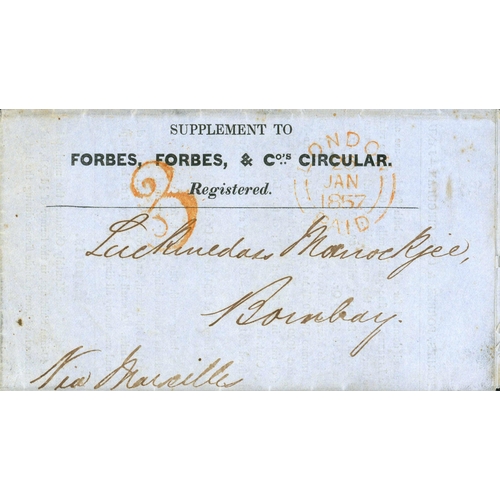 SUPPLEMENT TO
FORBES, FORBES, & Co's CIRCULAR.
Registered.
3
LONDON
JAN
1857
PAID
Luckmedass Manockjee,
Bombay.
Via Marseilles